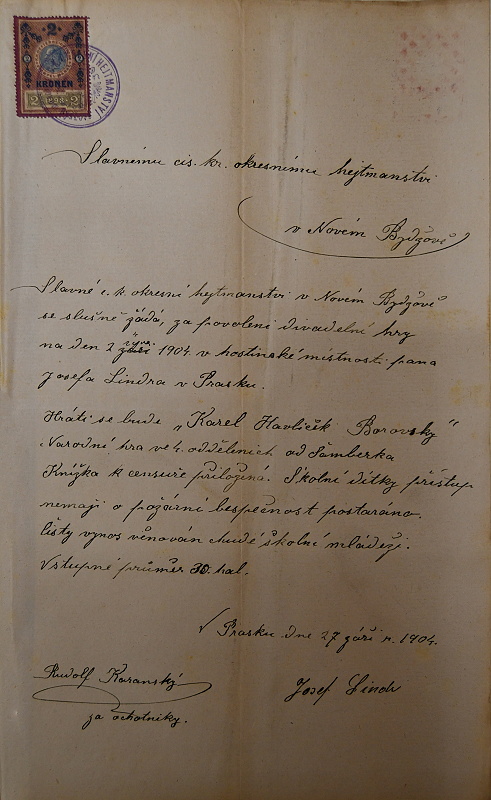 2
KRONEN
2 1898 2
HEJTMANSTVÍ
Slavnému cis. kr. okresnímu hejtmanství
v Novém Bydžově
Slavné c. k. okresní hejtmanství v Novém Bydžově
se slušně žádá, za povolení divadelní hry
října
na den 2 září 1904 v hostinské místnosti pana
Josefa Lindra v Prasku.
Hráti se bude „Karel Havlíček Borovský"
Narodní hra ve 4. odděleních od Šamberka
Knížka k censuře přiložená. Školní dítky přístup
nemají o požární bespečnost postaráno.
Čistý vynos věnován chudé školní mládeži.
Vstupné průměr 30. hal.
V Prasku dne 27 září r. 1904.
Rudolf Josef Lindr
za ochotníky.